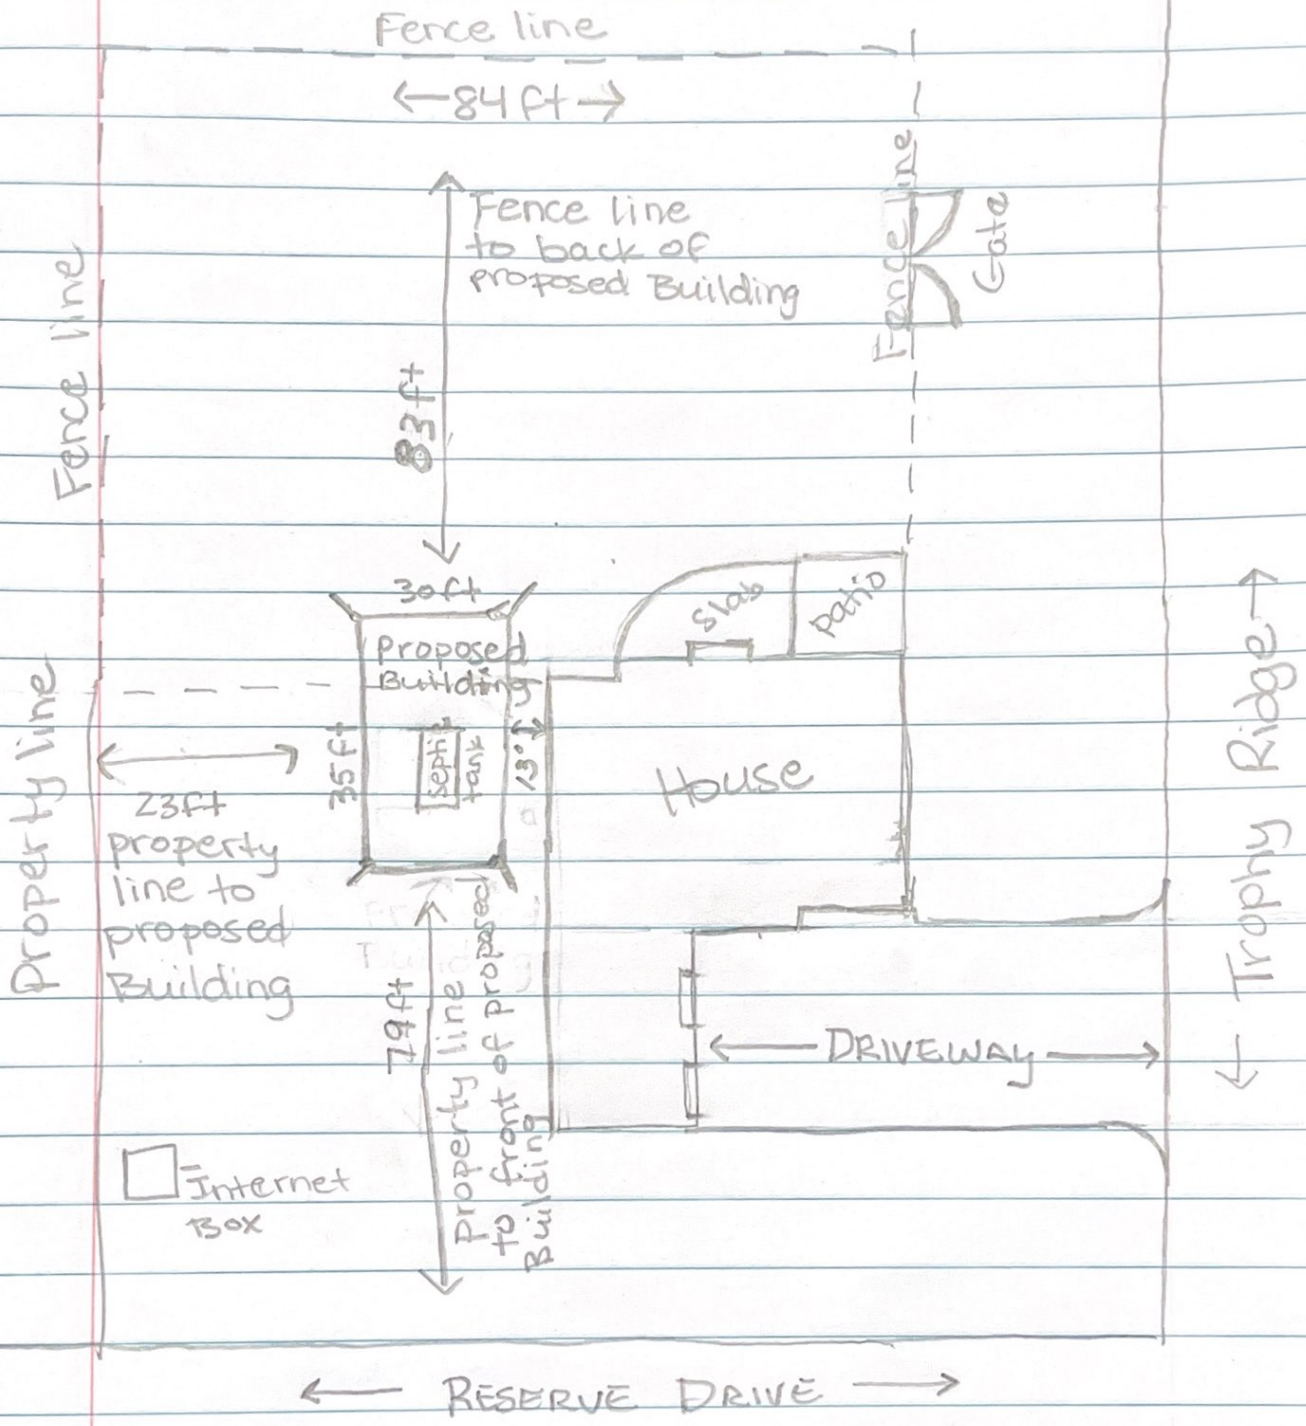 Fence line
84ft
Fence line
to back of
proposed Building
83ft
Fence line
Gate
Fence line
30ft
Proposed
Building
35ft
septic
tank
Slab
Patio
House
Property line
23ft
property
line to
proposed
Building
79ft
Property line
to front of proposed
Building
DRIVEWAY
Trophy Ridge
Internet
Box
RESERVE DRIVE